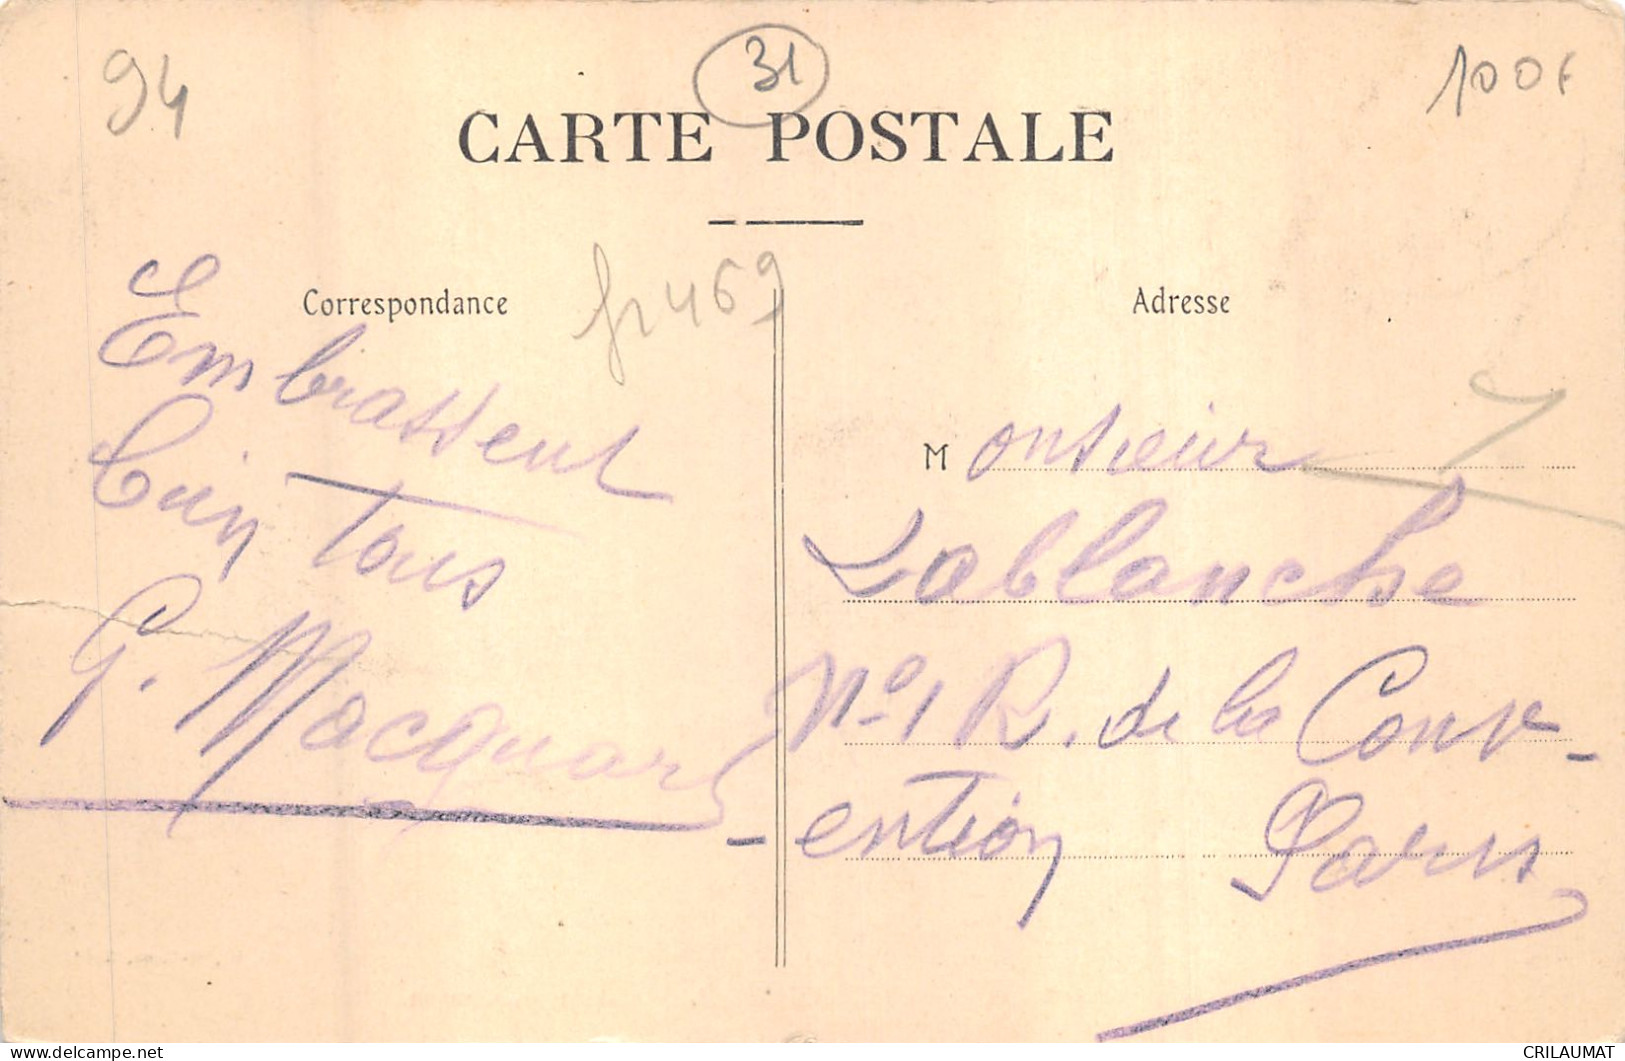 94
31
100F
CARTE POSTALE
Correspondance
fr 469
Adresse
Embrassent
bien Tous
G. Macquart
Monsieur
Lablanche
N° 1 R. de la Conv-
-ention Paris
CRILAUMAT